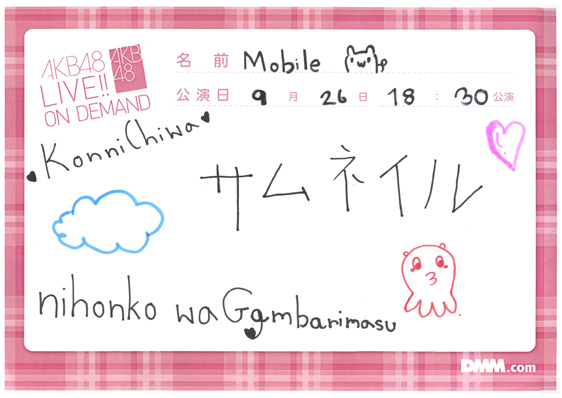 AKB48
LIVE!!
ON DEMAND
AKB
48
名前 Mobile
公演日 9月 26日 18:30公演
KonniChiwa
サムネイル
nihonko wa Gambarimasu
DMM.com